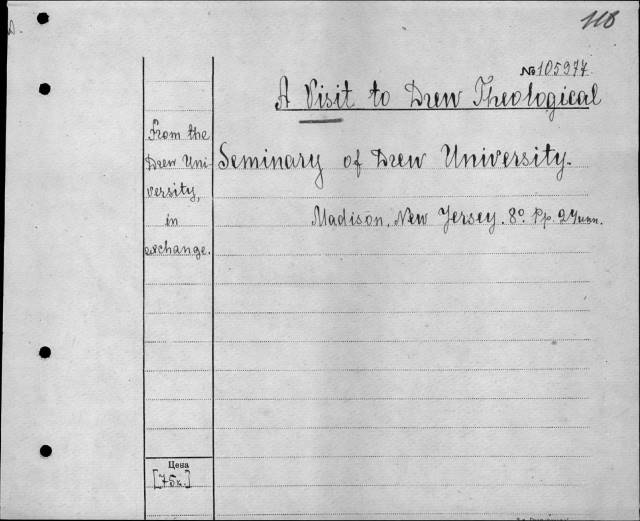 118
№105977.
A Visit to Drew Theological
Seminary of Drew University.
Madison, New Jersey. 8º. Pp. 27 unn.
From the
Drew Uni-
versity,
in
exchange.
Цена
[75к.]